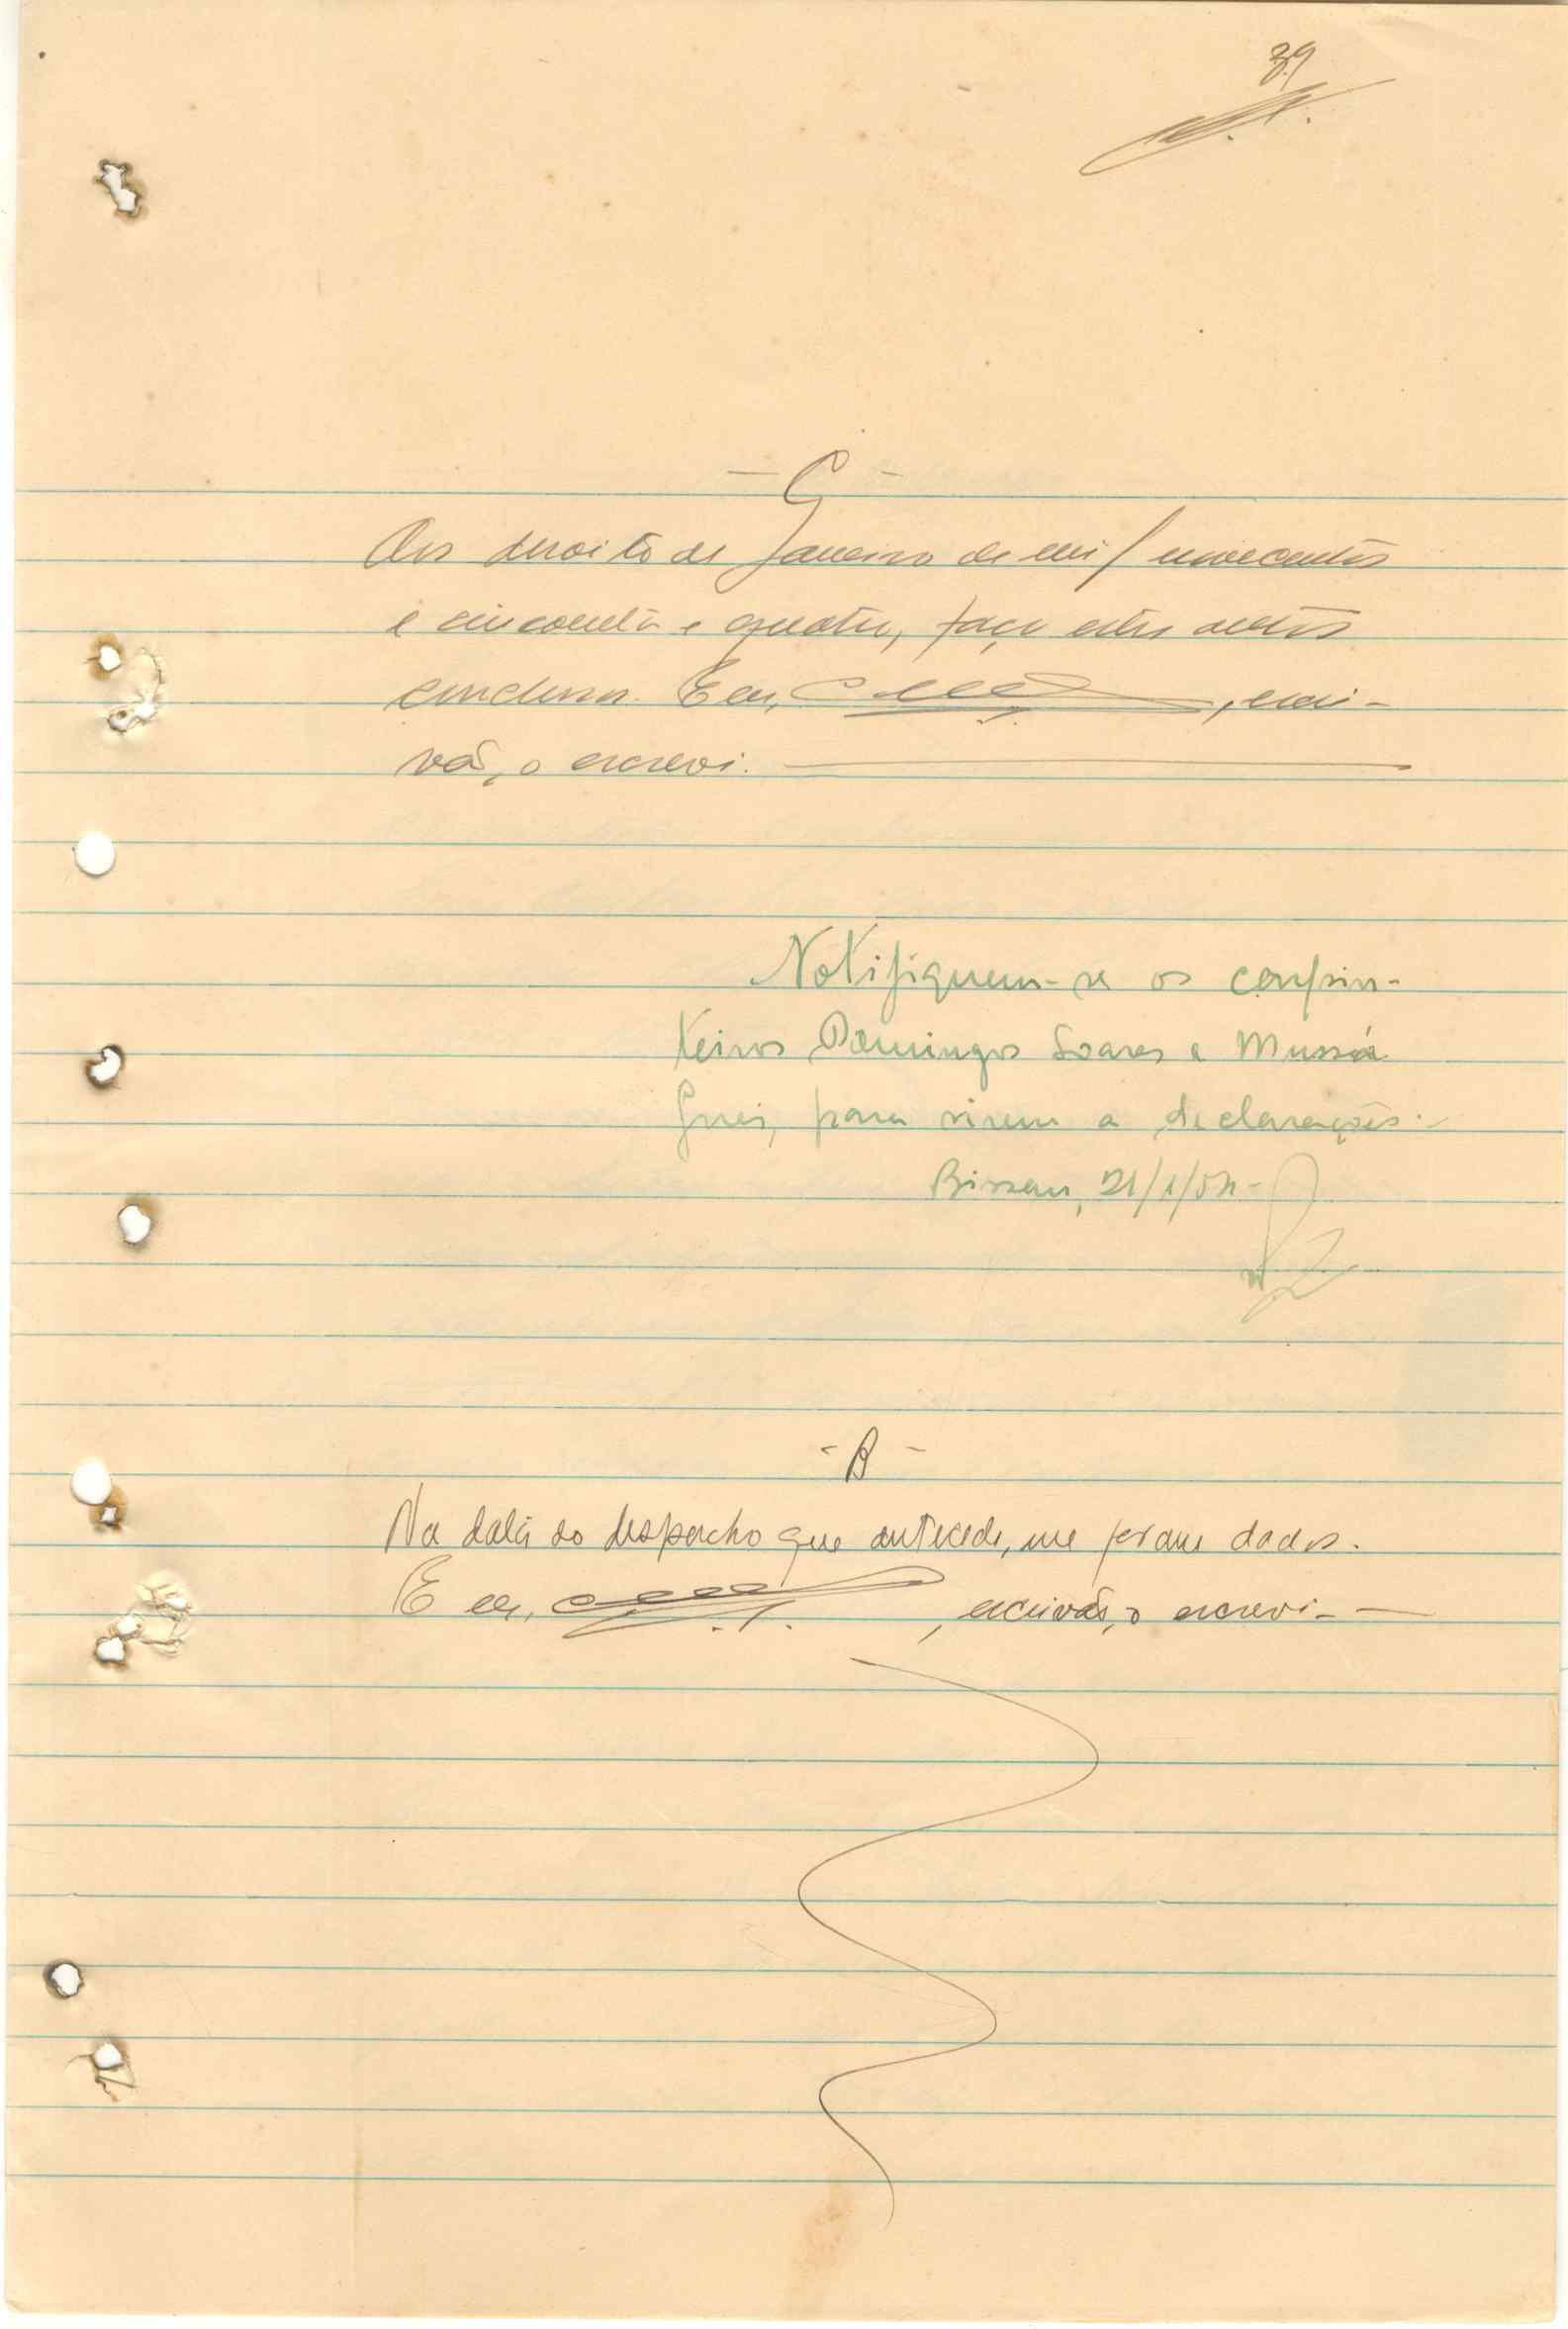 39
- C -
Aos dezoito de Janeiro de mil novecentos
e cincoenta e quatro, faço estes autos
conclusos. E eu, , escri-
vão, o escrevi.
Notifiquem-se os carpin-
teiros Domingos Soares e Mussá
para virem a declarações.-
Bissau, 21/1/54-
- B -
Na data do despacho que antecede, me foram dados.
E eu, , escrivão, o escrevi.-